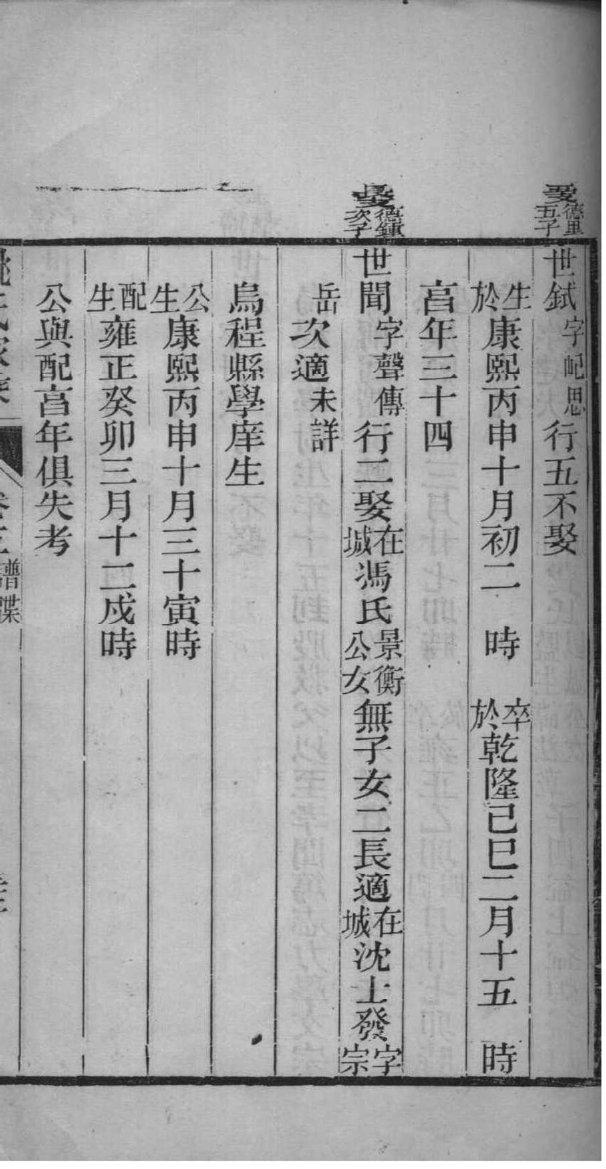 德里五子
世鉽字屺思行五不娶
生於康熙丙申十月初二 時 卒於乾隆己巳二月十五 時
言年三十四
德鍾次子
世聞字聲傳行二娶在城馮氏景衡公女無子女二長適在城沈士發字宗
岳次適未詳
烏程縣學庠生
公生康熙丙申十月三十寅時
配生雍正癸卯三月十二戌時
公與配言年俱失考
姚氏家乘 卷三譜牒